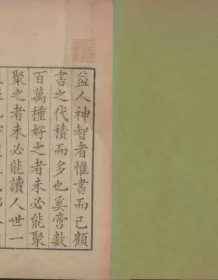 益人神智者惟書而已顧
書之代積而多也奚啻數
百萬種好之者未必能聚
聚之者未必能讀人世一